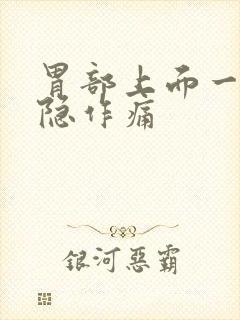 胃部上而一
隐作痛
银河恶霸